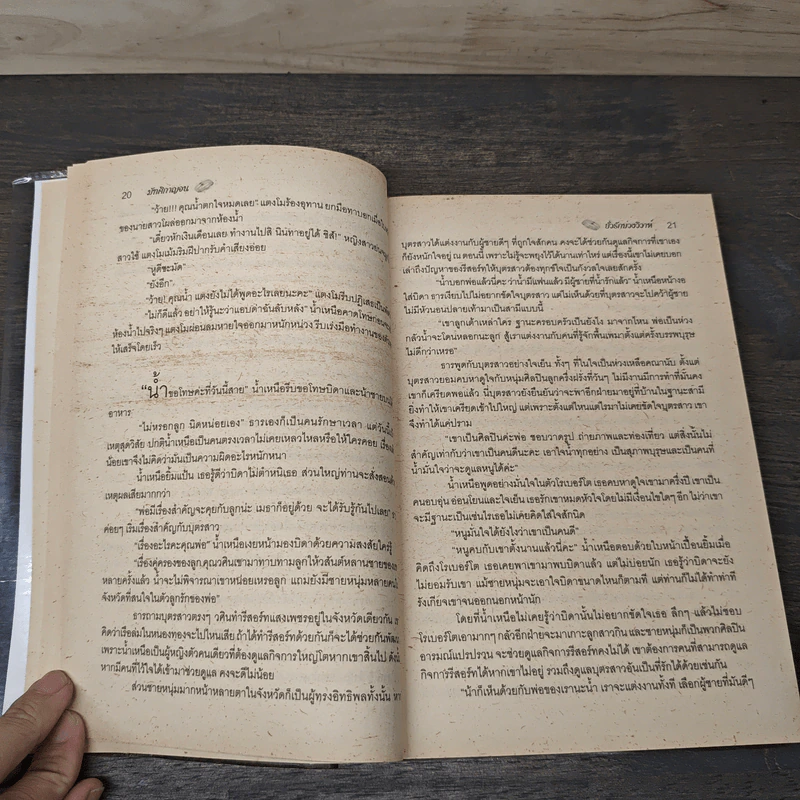 20 มัทศิกาญจน
"ว้าย!!! คุณน้ำตกใจหมดเลย" แตงโมร้องอุทาน ยกมือทาบอกเมื่อ
ของนายสาวโผล่ออกมาจากห้องน้ำ
"เดี๋ยวหักเงินเดือนเลย ทำงานไป นินทาอยู่ได้ ชิส์!" หญิงสาว
สาวใช้ แตงโมเม้มริมฝีปากรับคำเสียงอ่อย
"หูดีชะมัด"
"ยังอีก"
"ว้าย! คุณน้ำ แตงยังไม่ได้พูดอะไรเลยนะคะ" แตงโมรีบปฏิเสธ
"ไม่ก็ดีแล้ว อย่าให้รู้นะว่าแอบด่าฉันลับหลัง" น้ำเหนือคาดโทษก่อน
ห้องน้ำไปจริงๆ แตงโมผ่อนลมหายใจออกมาหนักหน่วง รีบเร่งมือทำงานของ
ให้เสร็จโดยเร็ว
"น้ำขอโทษค่ะที่วันนี้สาย" น้ำเหนือรีบขอโทษบิดาและน้าชาย
อาหาร
"ไม่หรอกลูก นิดหน่อยเอง" ธารเองก็เป็นคนรักษาเวลา แต่วันนี้
เหตุสุดวิสัย ปกติน้ำเหนือเป็นคนตรงเวลาไม่เคยเหลวไหลหรือให้ใครคอย เรื่อง
น้อยเขาจึงไม่คิดว่ามันเป็นความผิดอะไรหนักหนา
น้ำเหนือยิ้มแป้น เธอรู้ดีว่าบิดาไม่ตำหนิเธอ ส่วนใหญ่ท่านจะสั่งสอน
เหตุผลเสียมากกว่า
"พ่อมีเรื่องสำคัญจะคุยกับลูกน่ะ เมธาก็อยู่ด้วย จะได้รับรู้กันไปเลย"
ค่อยๆ เริ่มเรื่องสำคัญกับบุตรสาว
"เรื่องอะไรคะคุณพ่อ" น้ำเหนือเงยหน้ามองบิดาด้วยความสงสัยใคร่รู้
"เรื่องคู่ครองของลูก คุณวศินเขามาทาบทามลูกให้วสันต์หลานชายของ
หลายครั้งแล้ว น้ำจะไม่พิจารณาเขาหน่อยเหรอลูก แถมยังมีชายหนุ่มหลายคน
จังหวัดที่สนใจในตัวลูกรักของพ่อ"
ธารถามบุตรสาวตรงๆ วศินทำรีสอร์ทแสงเพชรอยู่ในจังหวัดเดียวกัน
คิดว่าเรือล่มในหนองทองจะไปไหนเสีย ถ้าได้ทำรีสอร์ทด้วยกันก็จะได้ช่วยกันพัฒน
เพราะน้ำเหนือเป็นผู้หญิงตัวคนเดียวที่ต้องดูแลกิจการใหญ่โตหากเขาสิ้นไป
หากมีคนที่ไว้ใจได้เข้ามาช่วยดูแล คงจะดีไม่น้อย
ส่วนชายหนุ่มมากหน้าหลายตาในจังหวัดก็เป็นผู้ทรงอิทธิพลทั้งนั้น
ยั่วรักบวงวิวาห์ 21
บุตรสาวได้แต่งงานกับผู้ชายดีๆ ที่ถูกใจสักคน คงจะได้ช่วยกันดูแลกิจการที่เขาเอง
ก็ยังหนักใจอยู่ ณ ตอนนี้ เพราะไม่รู้จะพยุงไว้ได้นานเท่าไหร่ แต่เรื่องนี้เขาไม่เคยบอก
เล่าถึงปัญหาของรีสอร์ทให้บุตรสาวต้องทุกข์ใจเป็นกังวลใจเลยสักครั้ง
"น้ำบอกพ่อแล้วนี่คะ ว่าน้ำมีแฟนแล้ว มีผู้ชายที่น้ำรักแล้ว" น้ำเหนือหน้างอ
ใส่บิดา ธารเงียบไปไม่อยากขัดใจบุตรสาว แต่ไม่เห็นด้วยที่บุตรสาวจะไปคว้าผู้ชาย
ไม่มีหัวนอนปลายเท้ามาเป็นสามีแบบนี้
"เขาลูกเต้าเหล่าใคร ฐานะครอบครัวเป็นยังไง มาจากไหน พ่อเป็นห่วง
กลัวน้ำจะโดนหลอกนะลูก สู้เราแต่งงานกับคนที่รู้จักพื้นเพมาตั้งแต่ครั้งบรรพบุรุษ
ไม่ดีกว่าเหรอ"
ธารพูดกับบุตรสาวอย่างใจเย็น ทั้งๆ ที่ในใจเป็นห่วงเหลือคณานับ ตั้งแต่
บุตรสาวยอมคบหาดูใจกับหนุ่มศิลปินลูกครึ่งฝรั่งที่วันๆ ไม่มีงานการทำที่มั่นคง
เขาก็เครียดพอแล้ว นี่บุตรสาวยังยืนยันว่าจะพาอีกฝ่ายมาอยู่ที่บ้านในฐานะสามี
ยิ่งทำให้เขาเครียดเข้าไปใหญ่ แต่เพราะตั้งแต่ไหนแต่ไรมาไม่เคยขัดใจบุตรสาว เขา
จึงทำได้แค่ปราม
"เขาเป็นศิลปินค่ะพ่อ ชอบวาดรูป ถ่ายภาพและท่องเที่ยว แต่สิ่งนั้นไม่
สำคัญเท่ากับว่าเขาเป็นคนดีนะคะ เอาใจน้ำทุกอย่าง เป็นสุภาพบุรุษและเป็นคนที่
น้ำมั่นใจว่าจะดูแลหนูได้ค่ะ"
น้ำเหนือพูดอย่างมั่นใจในตัวโรเบอร์โต เธอคบหาดูใจเขามาครึ่งปี เขาเป็น
คนอบอุ่น อ่อนโยนและใจเย็น เธอรักเขาหมดหัวใจโดยไม่มีเงื่อนไขใดๆ อีก ไม่ว่าเขา
จะมีฐานะเป็นเช่นไรเธอไม่เคยคิดใส่ใจสักนิด
"หนูมั่นใจได้ยังไงว่าเขาเป็นคนดี"
"หนูคบกับเขาตั้งนานแล้วนี่คะ" น้ำเหนือตอบด้วยใบหน้าเปื้อนยิ้มเมื่อ
คิดถึงโรเบอร์โต เธอเคยพาเขามาพบบิดาแล้ว แต่ไม่บ่อยนัก เธอรู้ว่าบิดาจะยัง
ไม่ยอมรับเขา แม้ชายหนุ่มจะเอาใจบิดาขนาดไหนก็ตามที แต่ท่านก็ไม่ได้ทำท่าที
รังเกียจเขาจนออกนอกหน้านัก
โดยที่น้ำเหนือไม่เคยรู้ว่าบิดานั้นไม่อยากขัดใจเธอ ลึกๆ แล้วไม่ชอบ
โรเบอร์โตเอามากๆ กลัวอีกฝ่ายจะมาเกาะลูกสาวกิน และชายหนุ่มก็เป็นพวกศิลปิน
อารมณ์แปรปรวน จะช่วยดูแลกิจการรีสอร์ทคงไม่ได้ เขาต้องการคนที่สามารถดูแล
กิจการรีสอร์ทได้หากเขาไม่อยู่ รวมถึงดูแลบุตรสาวอันเป็นที่รักได้ด้วยเช่นกัน
"น้าก็เห็นด้วยกับพ่อของเรานะน้ำ เราจะแต่งงานทั้งที เลือกผู้ชายที่มันดีๆ